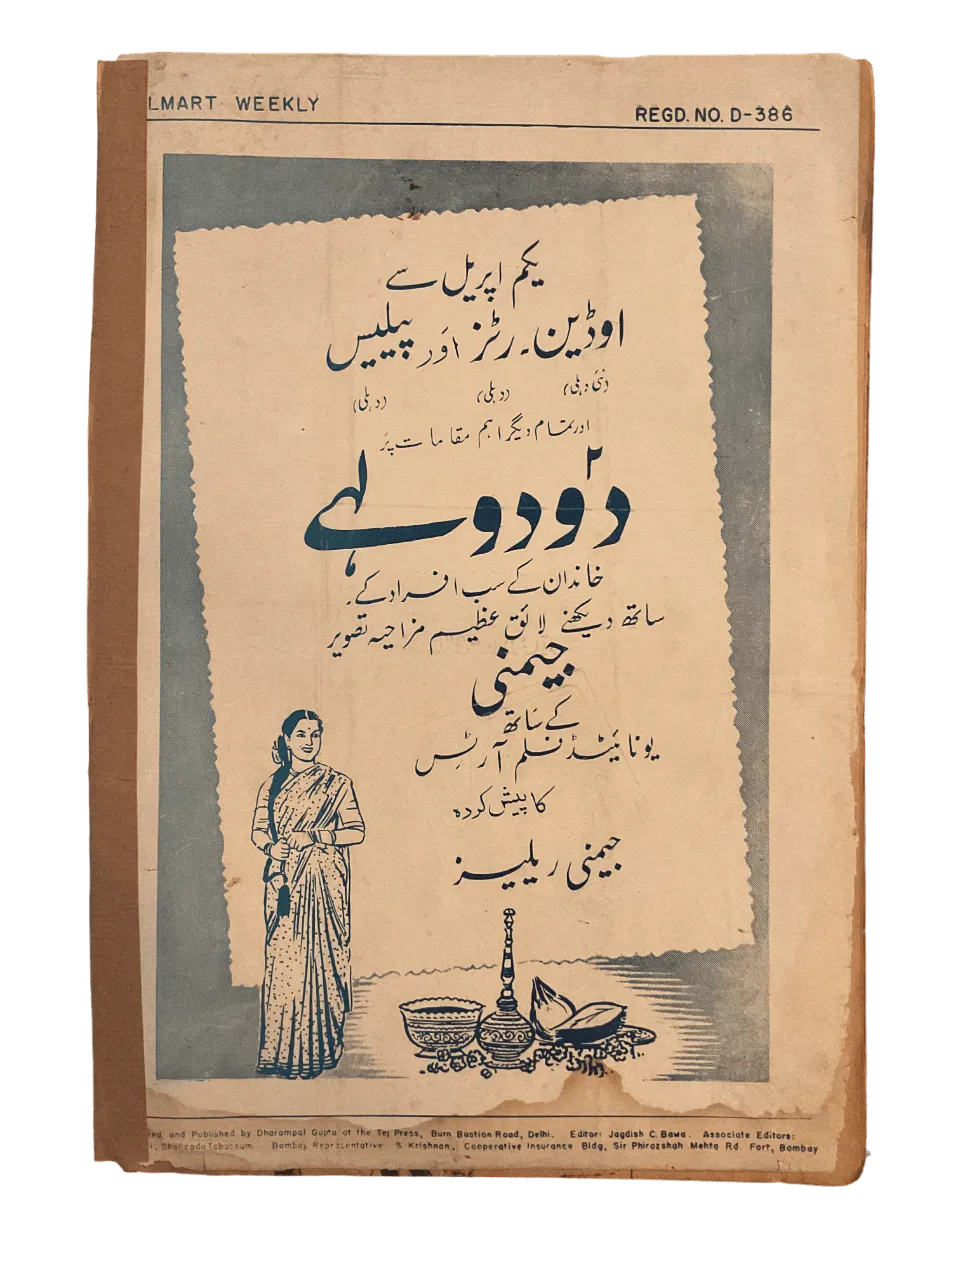 LMART WEEKLY
REGD. NO. D-386
یکم اپریل سے
اوڈین۔ رٹز اور پیلیس
(نئی دہلی) (دہلی) (دہلی)
اور تمام دیگر اہم مقامات پر
۲
دو دولہے
خاندان کے سب افراد کے۔
ساتھ دیکھنے لائق عظیم مزاحیہ تصویر
جیمنی
کے ساتھ
یونائیٹڈ فلم آرٹس
کا پیش کردہ
جیمنی ریلیز
ted and Published by Dharampal Gupta at the Tej Press, Burn Bastion Road, Delhi. Editor: Jagdish C. Bawa. Associate Editors:
Shahzada Tabassum. Bombay Representative S. Krishnan, Cooperative Insurance Bldg, Sir Phirozshah Mehta Rd. Fort, Bombay